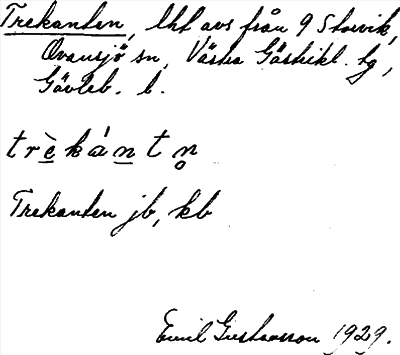 Trekanten, lht avs från 9 Storvik,
Ovansjö sn, Västra Gästrikl. tg,
Gävleb. l.
trèkántn̥
Trekanten jb, kb
Emil Gustavsson 1929.